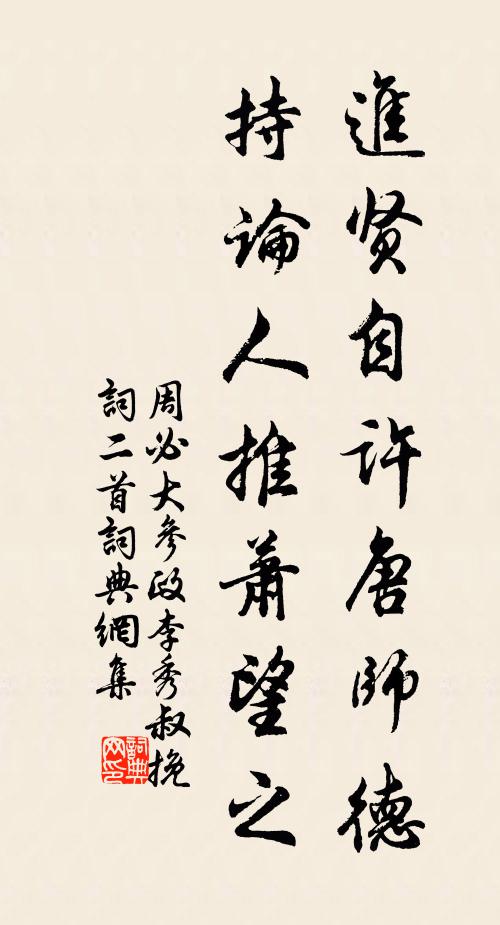 進贤自许唐師德
持論人推蕭望之
周必大參政李秀叔挽
詞二首詞典網集
詞典
网印